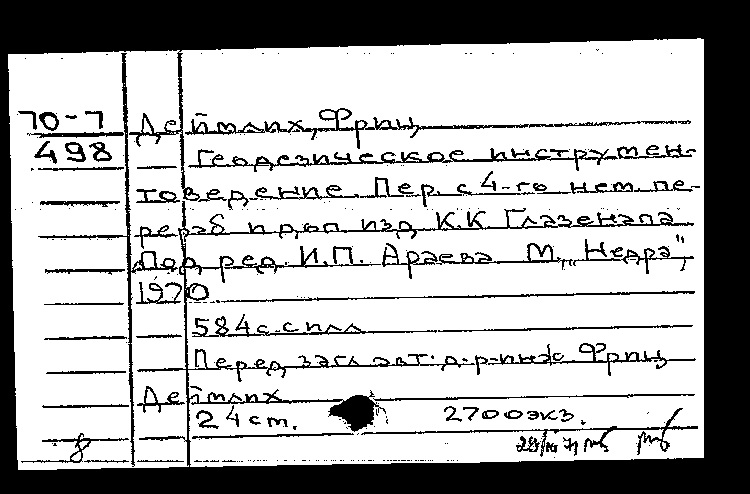 70-7 Деймлих, Фриц
498 Геодезическое инструмен-
товедение. Пер. с 4-го нем. пе-
рераб и доп изд К.К Глазенапа
Под ред. И.П. Араева М., „Недра",
1970.
584с. с илл
Перед загл авт: д-р-инж Фриц
Деймлих
24 ст. 2700экз.
8